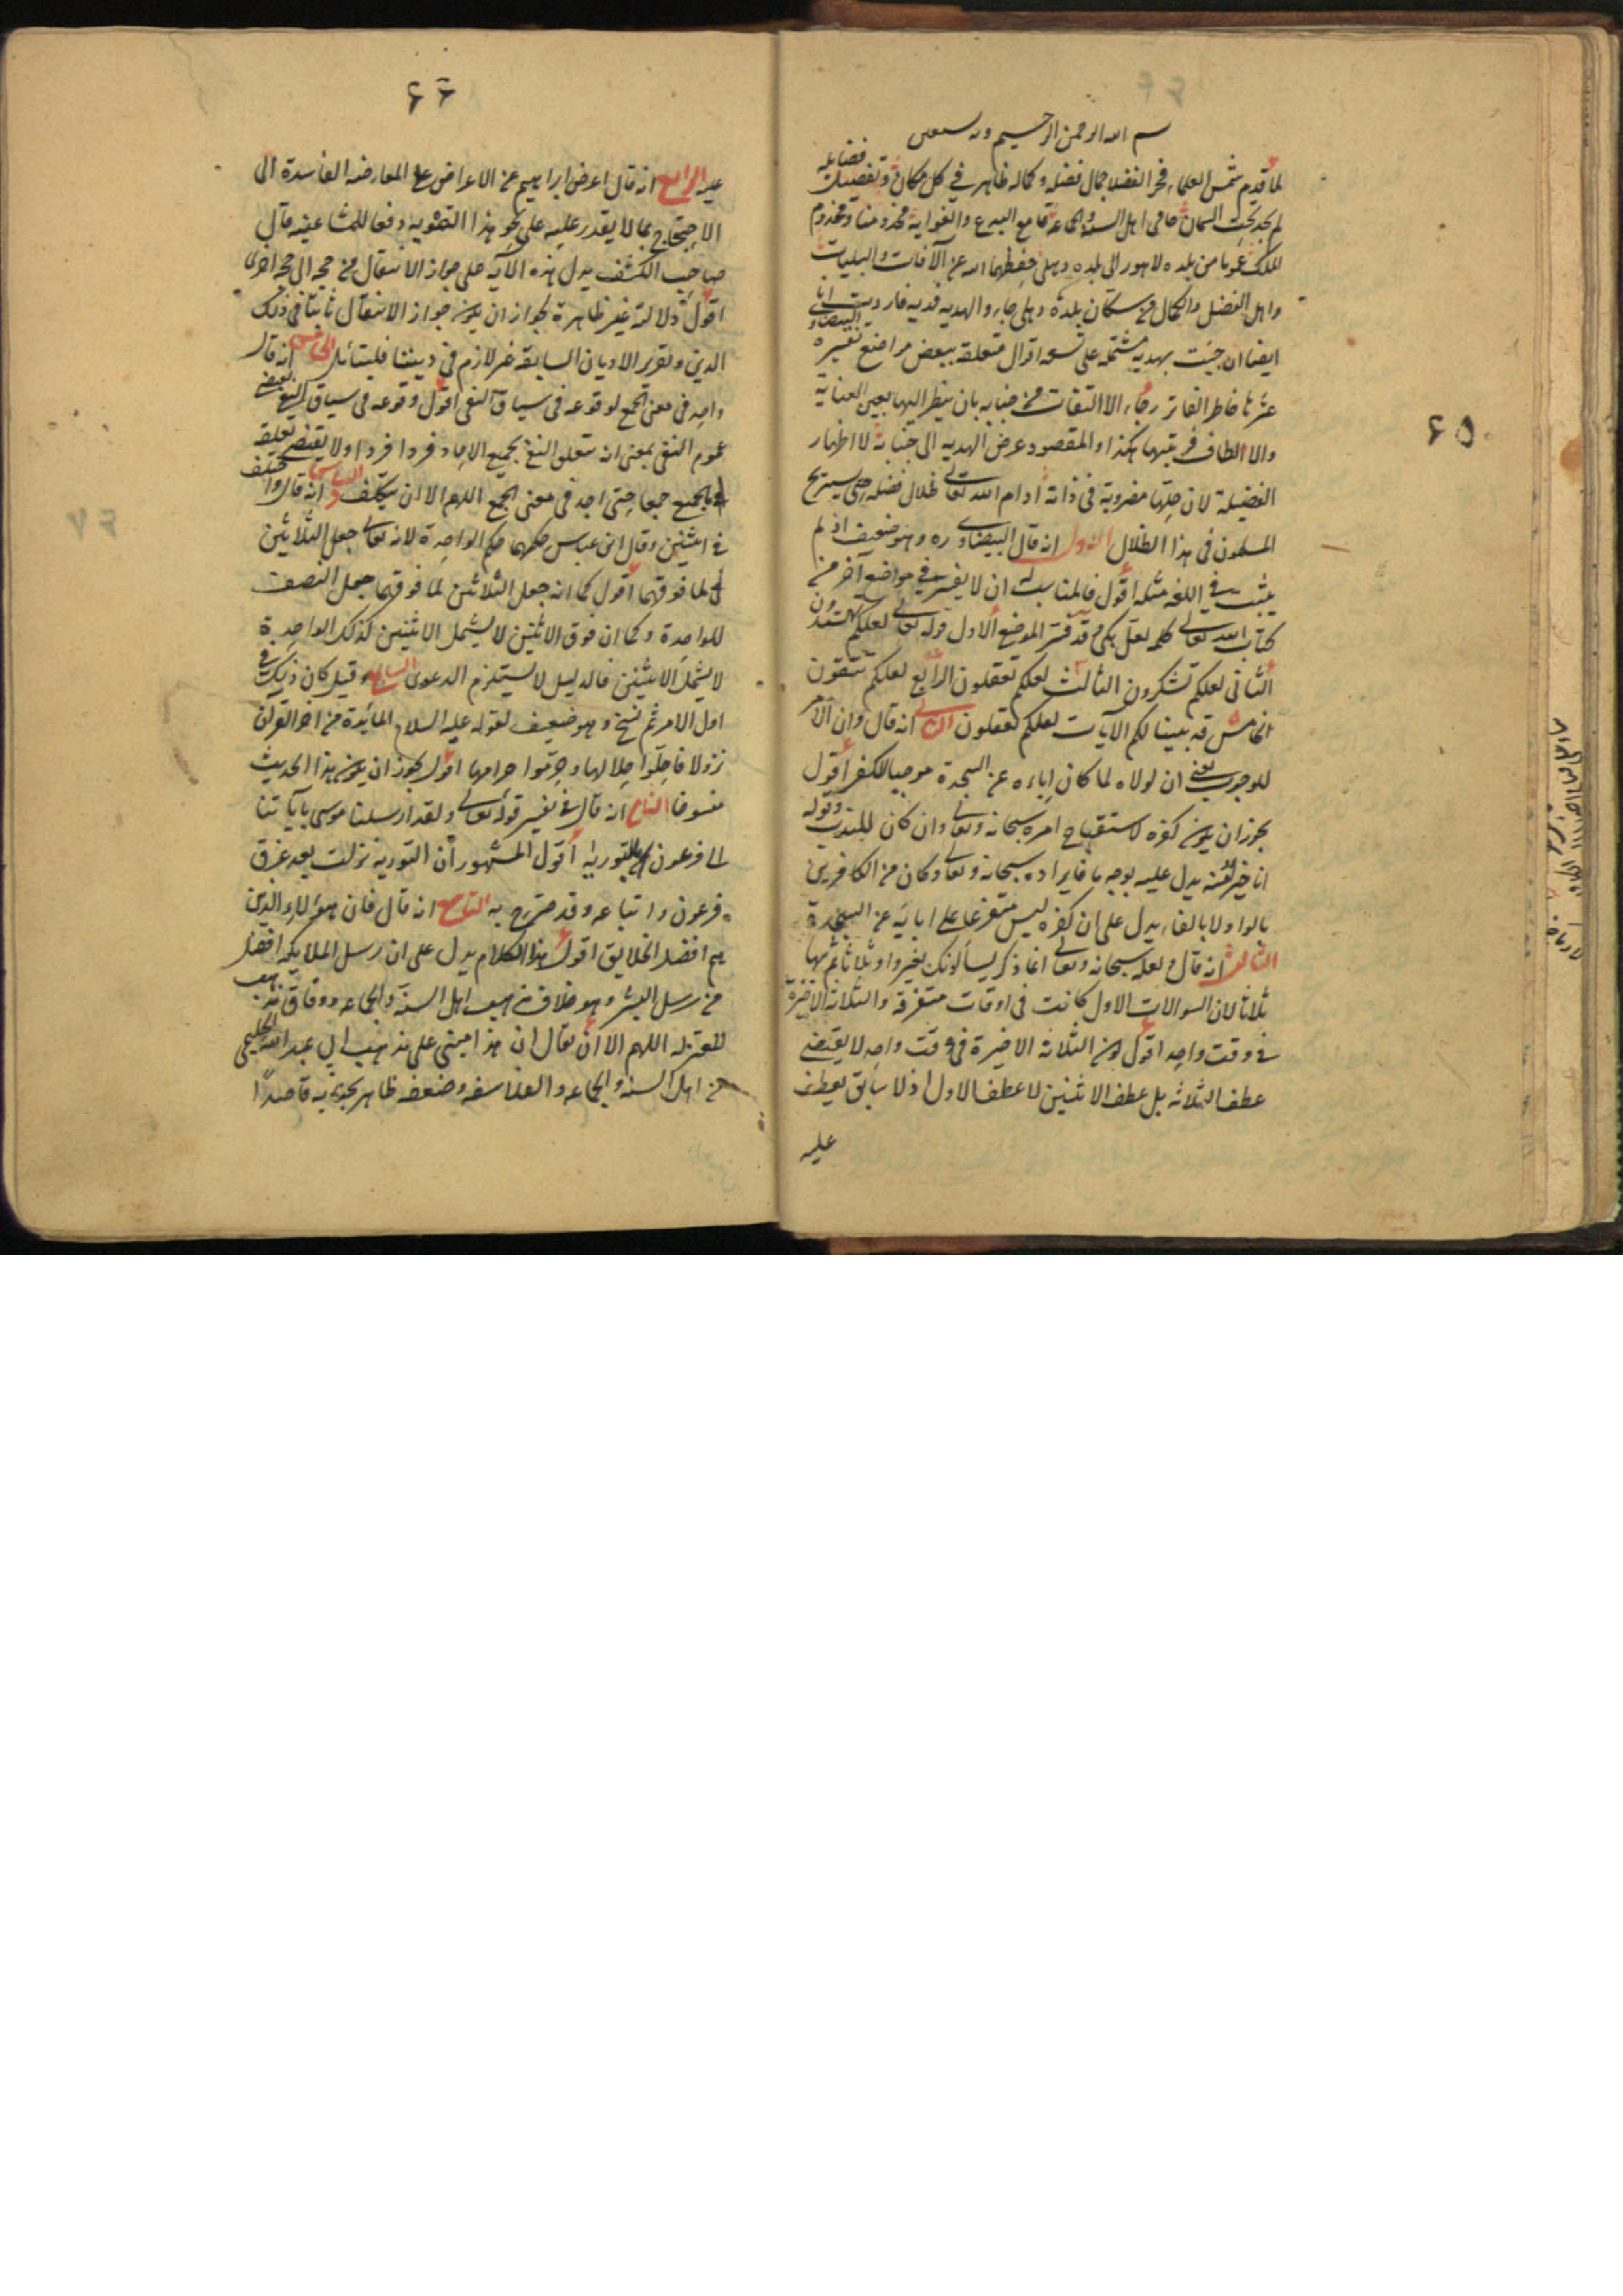 ۶۵
بسم الله الرحمن الرحيم وبه نستعين
لما قدم شمس العلماء فخر الفضلا جمال فضله وكماله ظاهر في كل مكان وتفصيل فضايله
لم يجد تحت السمان حامى اهل السنة والجماعة قامع البدع والغواية مخدومنا ومخدوم
الملك من بلده لاهور الى بلده دهلى حفظهما الله عن الآفات والبليات
واهل الفضل والكمال من سكان بلدة دهلى جاء والهديه فاردت انا
ايضا ان جيت بهديه مشتملة على تسعه اقوال متعلقة ببعض مواضع تفسيره البيضاوى
عثر ها خاطر الفاتر رجاء الالتفات من جنابه بان ينظر اليها بعين العناية
والالطاف هكذا والمقصود عرض الهديه الى جنابة لا اظهار
الفضيلة لان مضروبة فى ذاته ادام الله تعالى ظلال فضله حتى يستريح
المسلمون فى هذا الظلال الاول انه قال البيضاوى ره وهو ضعيف اذ لم
يثبت في اللغة مثله اقول فالمناسب ان لا يفسر في مواضع آخر من
كتاب الله تعالى كلمه لعل بكى وقد فسر الموضع الاول قوله تعالى لعلكم تهتدون
الثانى لعلكم تشكرون الثالث لعلكم تعقلون الرابع لعلكم تتقون
الخامس قد بينا لكم الآيات لعلكم تعقلون الثانى انه قال وان الامر
للوجوب يعنى ان لولاه لما كان اباءه عن السجدة موجبا للكفر اقول
يجوز ان يكون كفره لاستقباح امره سبحانه وتعالى وان كان للندب وقوله
انا خير منه يدل عليه بوجه ما فايراده سبحانه وتعالى وكان من الكافرين
بالواو لا بالفاء يدل على ان كفره ليس متفرعا على ابائه عن السجدة
الثالث انه قال ولعله سبحانه وتعالى انما ذكر يسألونك بغير واو ثلاثا ثم بها
ثلاثا لان السوالات الاول كانت فى اوقات متفرقة والثلاثة الاخيرة
فى وقت واحد اقول كون الثلاثة الاخيرة فى وقت واحد لا يقتضى
عطف الثلاثة بل عطف الاثنين لا عطف الاول اذ لا سابق يعطف
عليه
۶۶
عليه الرابع انه قال اعرض ابراهيم عن الاعراض على المعارضه الفاسدة الى
الاحتجاج بما لا يقدر عليه على نحو هذا التمويه دفعا للمشاغبه قال
صاحب الكشف يدل هذه الآيه على جواز الانتقال من حجه الى حجه اخرى
اقول دلالته غير ظاهرة لجواز ان يكون جواز الانتقال ثابتا فى ذلك
الدين وتقرير الاديان السابقة غير لازم فى ديننا فليتأمل الخامس انه قال
واحد فى معنى الجمع لوقوعه فى سياق النفى اقول وقوعه فى سياق النفى يقتضى
عموم النفى بمعنى انه يتعلق النفى بجميع الاحاد فردا فردا ولا يقتضى تعلقه
بالجميع جمعا حتى احد فى معنى الجمع اللهم الا ان يتكلف السادس انه قال واختلف
فى اثنين وقال ابن عباس حكمهما حكم الواحدة لانه تعالى جعل الثلاثين
لما فوقهما اقول كما انه جعل الثلاثين لما فوقهما جعل النصف
للواحدة وكما ان فوق الاثنين لا يشمل الاثنين كذلك الواحدة
لا يشمل الاثنين فالدليل لا يستلزم الدعوى السابع وقيل كان ذلك فى
اول الامر ثم نسخ وهو ضعيف لقوله عليه السلام المائدة من اخر القرآن
نزولا فاحلوا حلالها وحرموا حرامها اقول يجوز ان يكون هذا الحديث
منسوخا الثامن انه قال فى تفسير قوله تعالى ولقد ارسلنا موسى بآياتنا
الى فرعون بالتورية اقول المشهور ان التورية نزلت بعد غرق
فرعون واتباعه وقد صرح به التاسع انه قال فان هؤلاء الذين
هم افضل الخلايق اقول هذا الكلام يدل على ان رسل الملايكه افضل
من رسل البشر وهو خلاف مذهب اهل السنه والجماعه ووفاق مذهب
المعتزله اللهم الا ان يقال ان هذا مبنى على مذهب ابي عبد الله الحليمى
من اهل السنه والجماعه والفلاسفه وضعفه ظاهر قاصدا